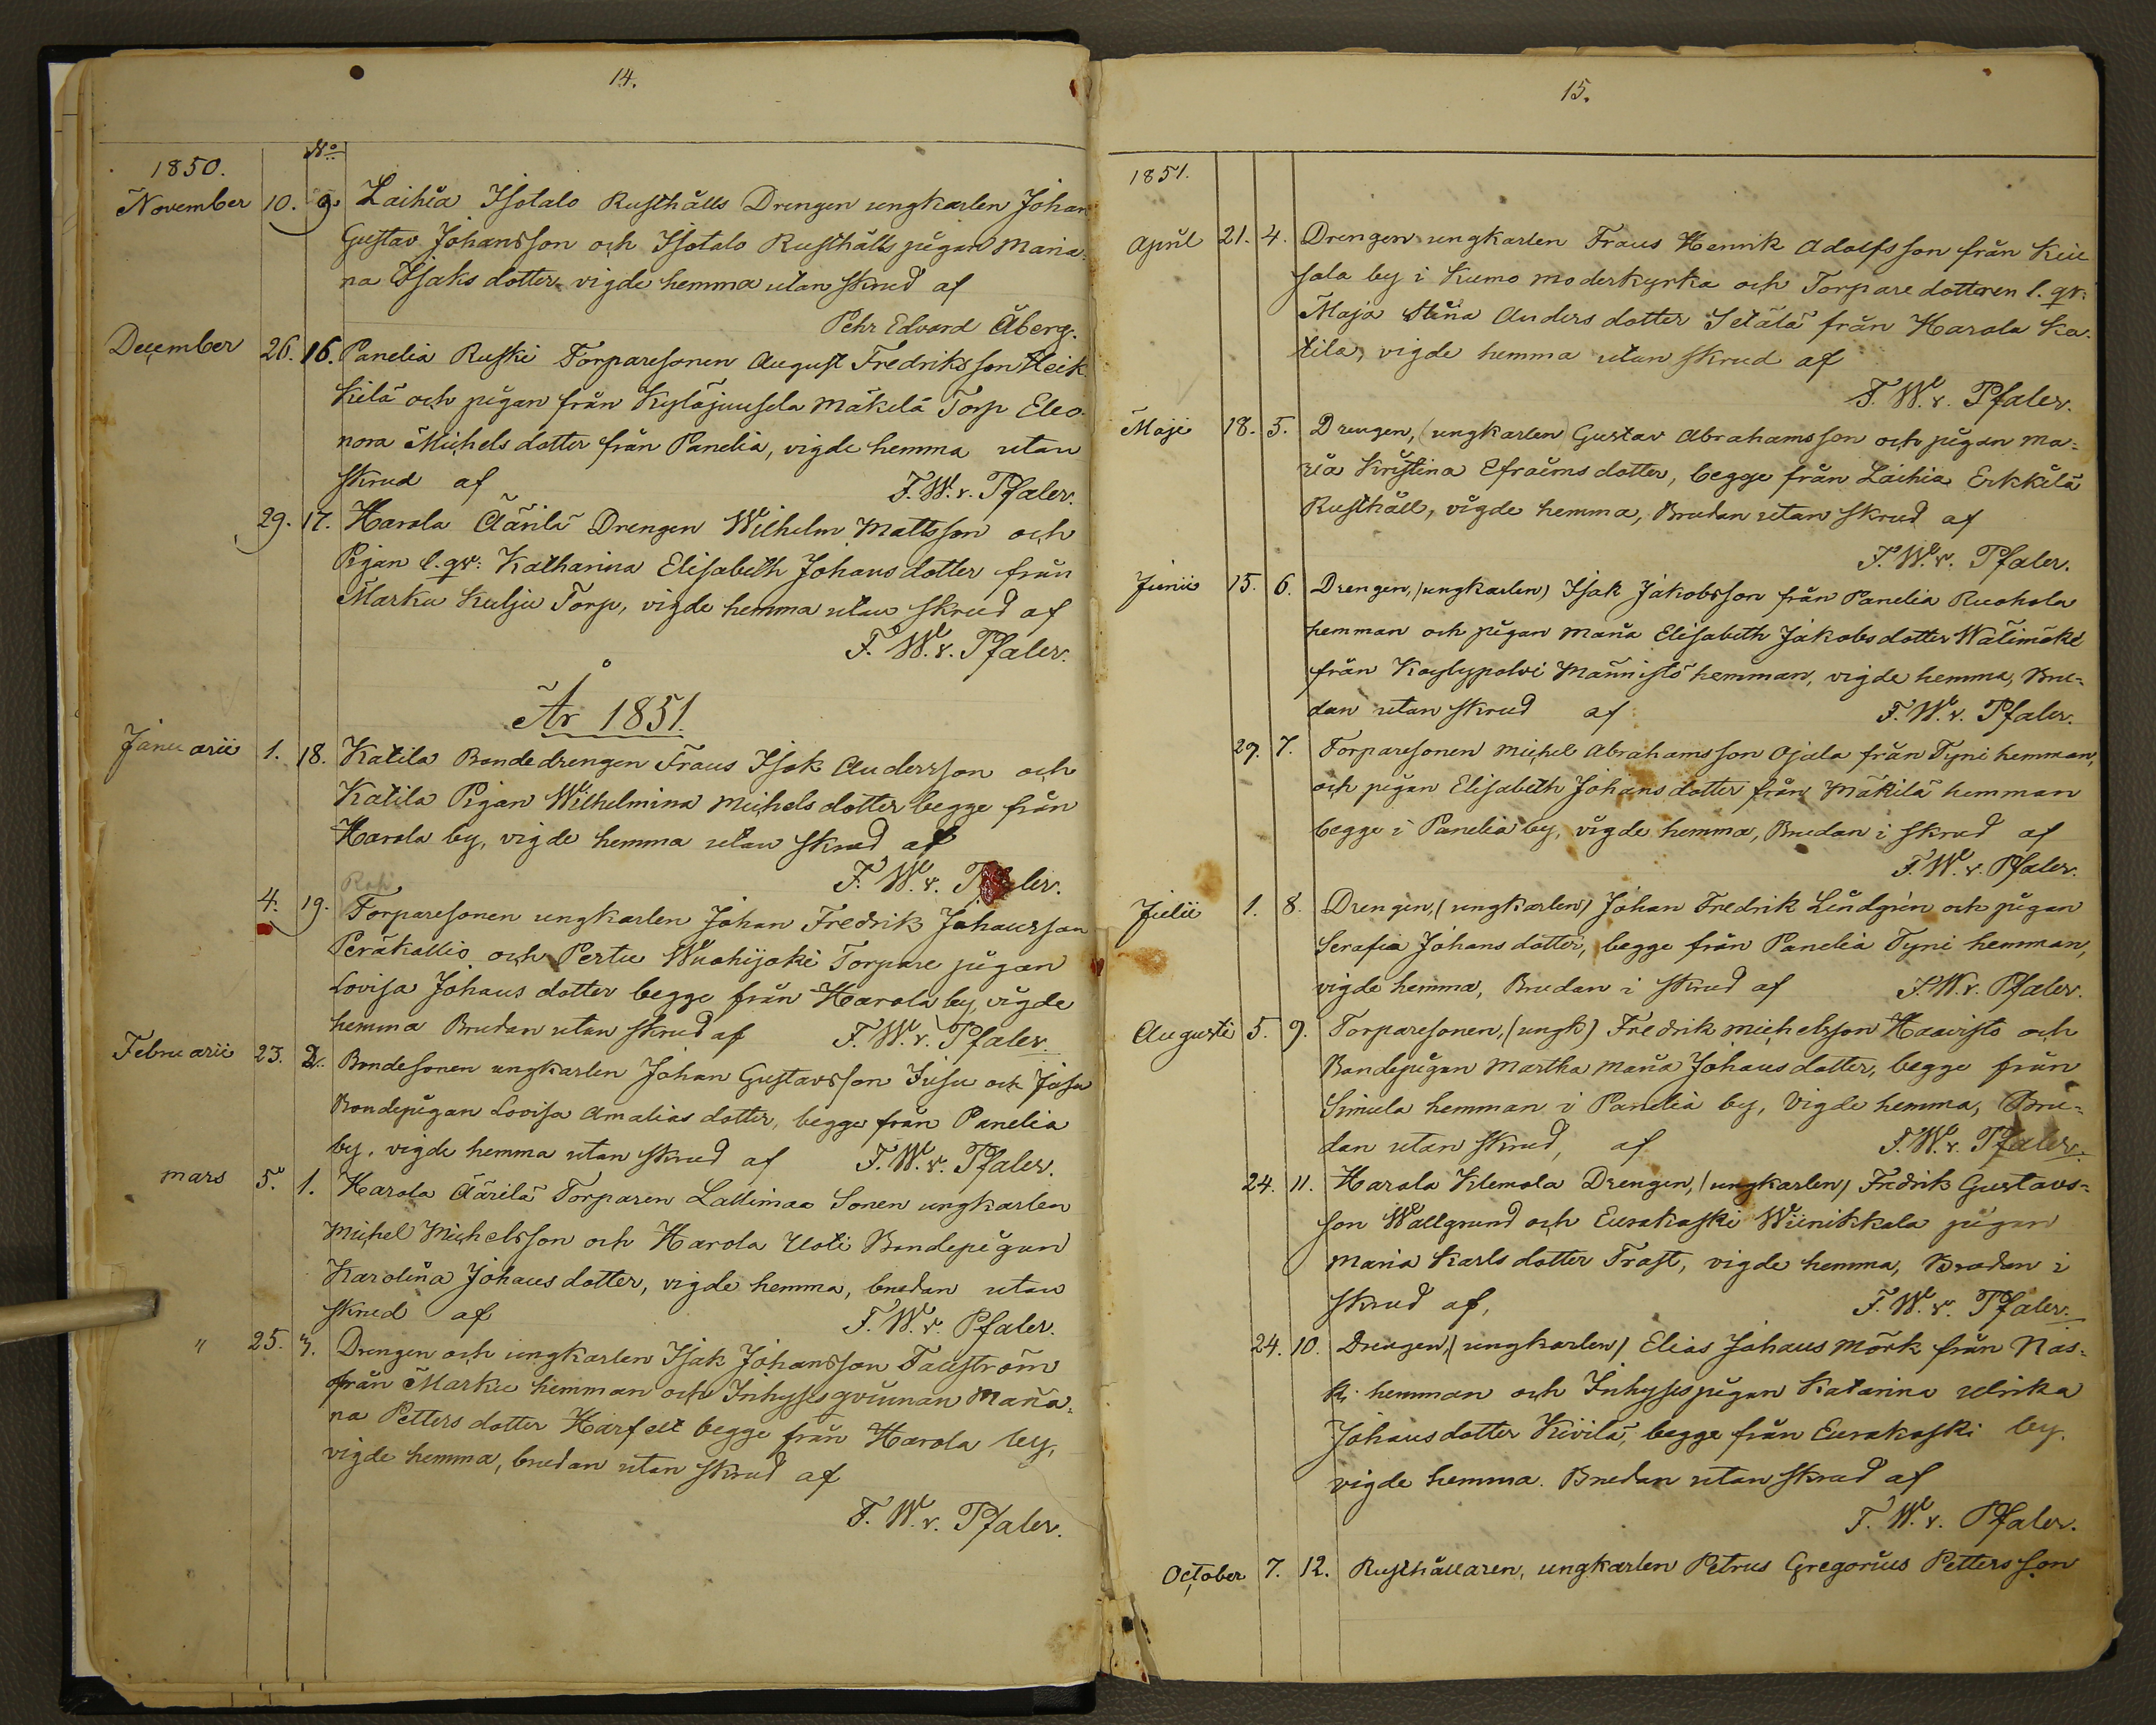 14.
No
1850.
November 10. 9. Laihia Isotalo Rusthålls Drengen ungkarlen Johan
Gustav Johansson och Isotalo Rusthålls pigan Maria-
na Isaksdotter vigde hemma utan skrud af
Pehr Edvard Åberg.
December 26. 16. Panelia Ruski Torparesonen August Fredriksson Heik-
kilä och pigan från Kyläjuusela Mäkelä Torp Eleo-
nora Michelsdotter från Panelia, vigde hemma utan
skrud af F. W. v. Pfaler.
29. 17. Harola Äärilä Drengen Wilhelm Mattsson och
Pigan l. qv: Katharina Elisabeth Johansdotter från
Marku Kulju Torp, vigde hemma utan skrud af
F. W. v. Pfaler.
År 1851.
Januarii 1. 18. Katila Bondedrengen Frans Isak Andersson och
Katila Pigan Wilhelmina Michelsdotter begge från
Harola by, vigde hemma utan skrud af
F. W. v. Pfaler.
4. 19. Torparesonen ungkarlen Johan Fredrik Johansson
Peräkallio och Pertu Wuohijoki Torpare pigan
Lovisa Johansdotter begge från Harola by, vigde
hemma Brudan utan skrud af F. W. v. Pfaler.
Februarii 23. 2. Bondesonen ungkarlen Johan Gustavsson Jusu och Jusu
Bondepigan Lovisa Amaliasdotter, begge från Panelia
by, vigde hemma utan skrud af F. W. v. Pfaler.
Mars 5. 1. Harola Äärilä Torparen Lallimaa Sonen ungkarlen
Michel Michelsson och Harola Uoti Bondepigan
Karolina Johansdotter, vigde hemma, brudan utan
skrud af F. W. v. Pfaler.
" 25. 3. Drengen och ungkarlen Isak Johansson Fagström
från Marku hemman och Inhysesqvinnan Maria-
na Pettersdotter Harfelt begge från Harola by,
vigde hemma, brudan utan skrud af
F. W. v. Pfaler.
15.
1851.
April 21. 4. Drengen ungkarlen Frans Henrik Adolfsson från Kuu
sola by i Kumo moderkyrka och Torparedotteren l. qv:
Maja Stina Andersdotter Setälä från Harola Ka-
tila, vigde hemma utan skrud af
F. W. v. Pfaler.
Maji 18. 5. Drengen, (ungkarlen Gustav Abrahamsson och pigan Ma-
ria Kristina Efraimsdotter, begge från Laihia Erkkilä
Rusthåll, vigde hemma, Brudan utan skrud af
F. W. v. Pfaler.
Junii 15. 6. Drengen, (ungkarlen) Isak Jakobsson från Panelia Ruohola
hemman och pigan Maria Elisabeth Jakobsdotter Wälimäki
från Köylypolvi Männistö hemman, vigde hemma, Bru-
dan utan skrud af F. W. v. Pfaler.
29. 7. Torparesonen Michel Abrahamsson Ojala från Tyni hemman,
och pigan Elisabeth Johansdotter från Mäkilä hemman
begge i Panelia by, vigde hemma, Brudan i skrud af
F. W. v. Pfaler.
Julii 1. 8. Drengen, (ungkarlen) Johan Fredrik Lindgrén och pigan
Serafia Johansdotter, begge från Panelia Tyni hemman,
vigde hemma, Brudan i skrud af F. W. v. Pfaler.
Augusti 5. 9. Torparesonen, (ungk) Fredrik Michelsson Haavisto och
Bondepigan Martha Maria Johansdotter, begge från
Simula hemman i Panelia by, Vigde hemma, Bru-
dan utan skrud, af F. W. v. Pfaler.
24. 11. Harola Klemola Drengen, (ungkarlen) Fredrik Gustavs-
son Wallgrund och Eurakoski Wiinikkala pigan
Maria Karlsdotter Trast, vigde hemma, Brudan i
skrud af, F. W. v. Pfaler.
24. 10. Drengen, (ungkarlen) Elias Johans Mörk från Näs-
ki hemman och Inhysespigan Katarina Ulrika
Johansdotter Kivilä, begge från Eurakoski by.
vigde hemma. Brudan utan skrud af
F. W. v. Pfaler.
October 7. 12. Rusthållaren, ungkarlen Petrus Gregorius Pettersson